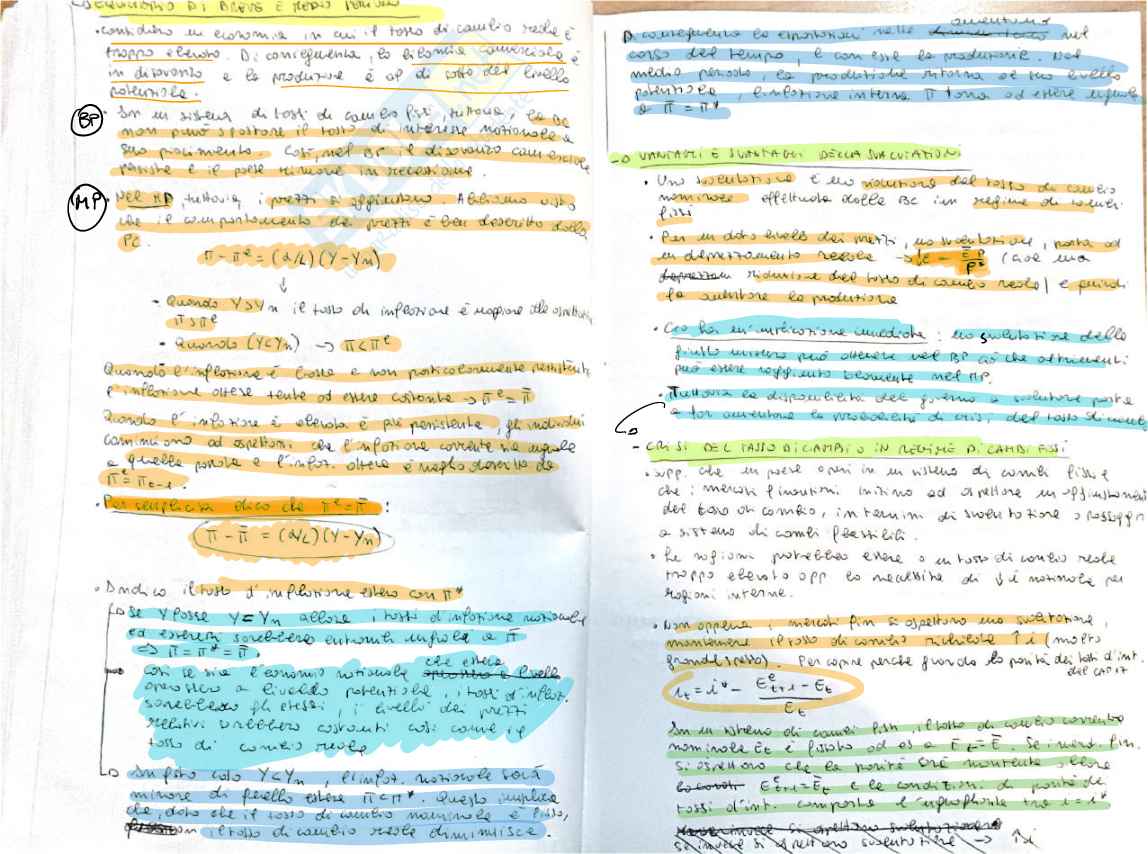 EQUILIBRIO DI BREVE E MEDIO PERIODO
• considero un'economia in cui il tasso di cambio reale è
troppo elevato. Di conseguenza, la bilancia commerciale è
in disavanzo e la produzione è al di sotto del livello
potenziale.
BP
In un sistema di tassi di cambio fissi tuttavia, la BC
non può spostare il tasso di interesse nazionale a
suo piacimento. Così, nel BP il disavanzo commerciale
persiste e il paese rimane in recessione.
MP
Nel MP, tuttavia, i prezzi si aggiustano. Abbiamo visto
che il comportamento dei prezzi è ben descritto dalla
PC.
π - πᵉ = (α/L) (Y - Yn)
↓
• Quando Y > Yn il tasso di inflazione è maggiore delle aspettative
π > πᵉ
• Quando (Y < Yn) → π < πᵉ
Quando l'inflazione è bassa e non particolarmente persistente
l'inflazione attesa tende ad essere costante → πᵉ = π̄
Quando l'inflazione è elevata e più persistente, gli individui
cominciano ad aspettarsi che l'inflazione corrente sia uguale
a quella passata e l'inflaz. attesa è meglio descritta da
πᵉ = πt-1.
• Per semplicità dico che πᵉ = π̄ :
π - π̄ = (α/L) (Y - Yn)
• Indico il tasso d'inflazione estero con π*
Se Y fosse Y = Yn allora i tassi d'inflazione nazionale
ed estera sarebbero entrambi uguali a π̄
=> π = π* = π̄.
Così se sia l'economia nazionale che estera
operassero a livello potenziale, i tassi d'inflaz.
sarebbero gli stessi, i livelli dei prezzi
relativi sarebbero costanti così come il
tasso di cambio reale
In questo caso Y < Yn, l'inflaz. nazionale sarà
minore di quella estera π < π*. Questo implica
che, dato che il tasso di cambio nominale è fisso,
il tasso di cambio reale diminuisce.
Di conseguenza le esportazioni nette aumentano nel
corso del tempo, e con esse la produzione. Nel
medio periodo, la produzione ritorna al suo livello
potenziale, l'inflazione interna π torna ad essere uguale
a π = π*
→ VANTAGGI E SVANTAGGI DELLA SVALUTAZIONE
• Una svalutazione è una riduzione del tasso di cambio
nominale effettuata dalla BC in regime di cambi
fissi
• Per un dato livello dei prezzi, una svalutazione, porta ad
un deprezzamento reale → ε = ĒP/P* (cioè una
riduzione del tasso di cambio reale) e quindi
fa aumentare la produzione
• Ciò ha un'implicazione immediata: una svalutazione della
giusta misura può ottenere nel BP ciò che altrimenti
può essere raggiunto solamente nel MP.
• Tuttavia la disponibilità del governo a svalutare porta
a far aumentare la probabilità di crisi del tasso di cambio
- CRISI DEL TASSO DI CAMBIO IN REGIME DI CAMBI FISSI
• supp. che un paese operi in un sistema di cambi fissi e
che i mercati finanziari inizino ad aspettare un aggiustamento
del tasso di cambio, in termini di svalutazione o passaggio
a sistema di cambi flessibili.
• Le ragioni potrebbero essere o un tasso di cambio reale
troppo elevato opp la necessità di ↓ i nazionale per
ragioni interne.
• Non appena i mercati fin si aspettano una svalutazione,
mantenere il tasso di cambio richiede ↑ i (molto
grande spesso). Per capire perché guardo la parità dei tassi d'int.
del CAP 17
it = i* - (Eᵉt+1 - Et)/Et
In un sistema di cambi fissi, il tasso di cambio corrente
nominale Et è fissato ad es a Et = Ē. Se i merc. fin.
si aspettano che la parità sarà mantenuta, allora
Eᵉt+1 = Ē e la condizioni di parità dei
tassi d'int. comporta l'uguaglianza tra i = i*
se invece si aspettano svalutazione → ↑ i